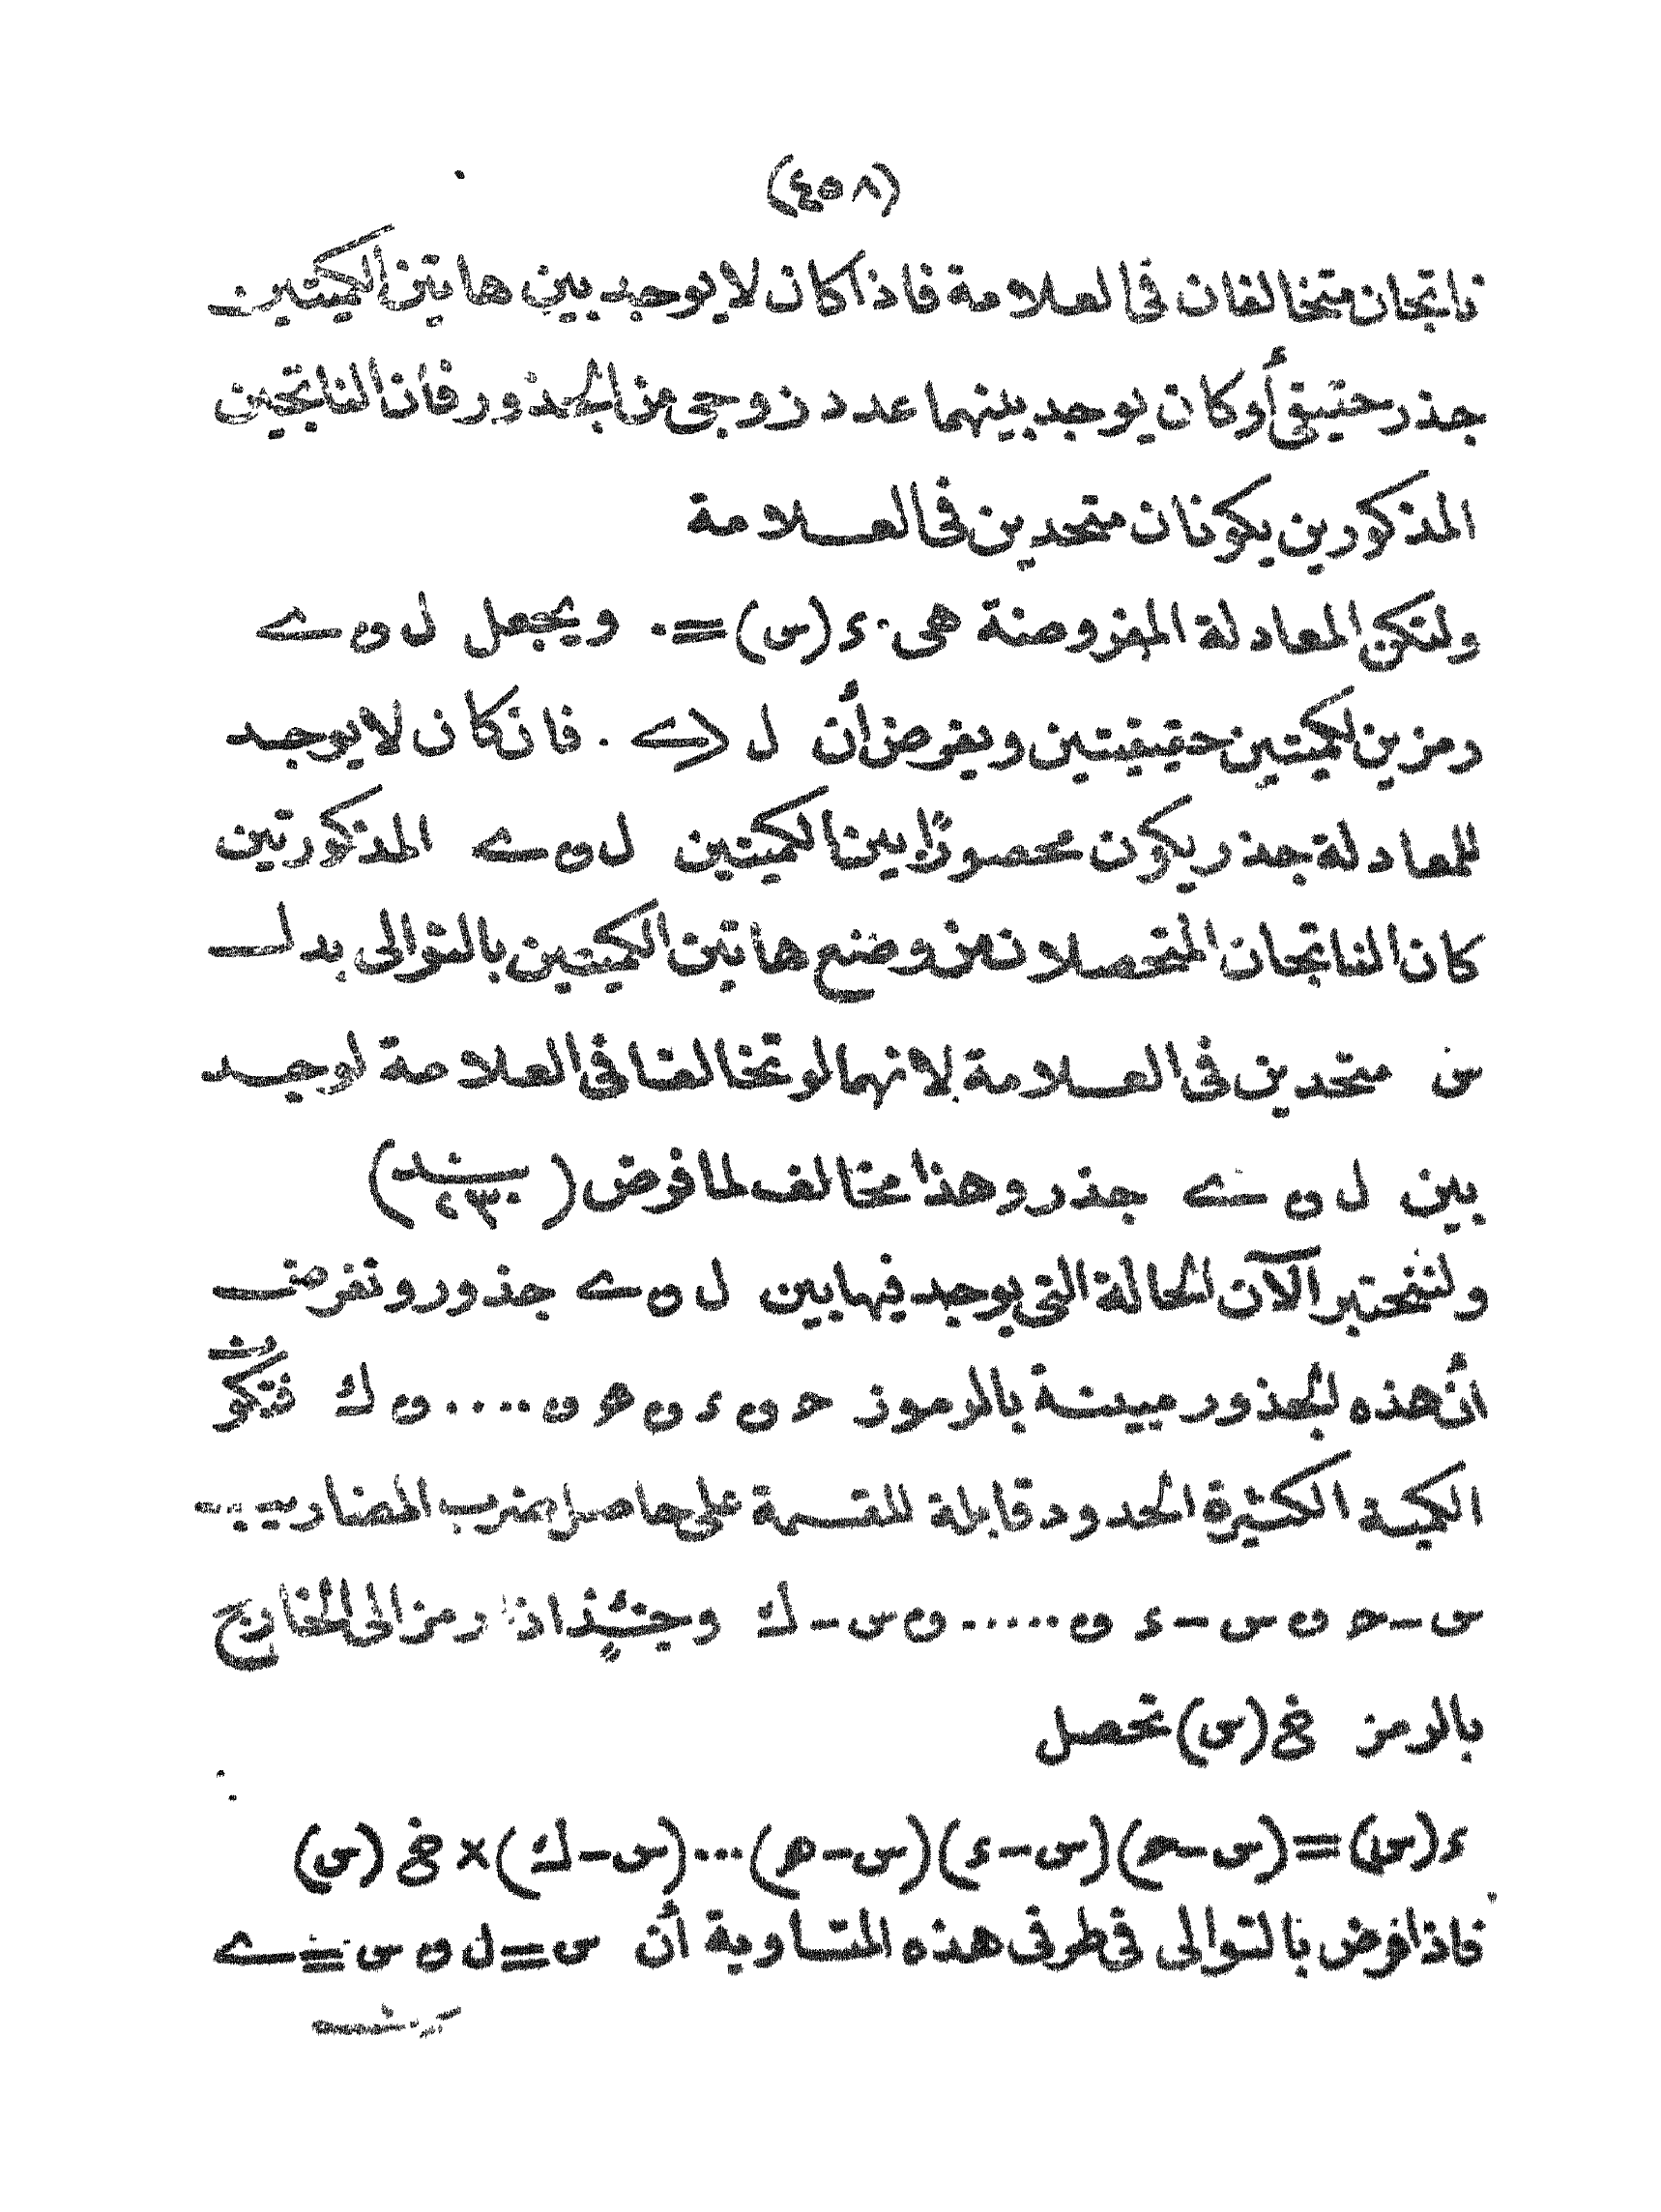 (٤٥٨)
ناتجان متخالفان فى العلامة فاذا كان لا يوجد بين هاتين الكميتين
جذر حقيقى أو كان يوجد بينهما عدد زوجى من الجذور فأن الناتجين
المذكورين يكونان متحدين فى العلامة
ولتكن المعادلة المفروضة هى ء(س)=٠ ويجعل ل و ے
رمزين لكميتين حقيقيتين ويفرض أن ل > ے . فان كان لا يوجد
للمعادلة جذر يكون محصورًا بين الكميتين ل و ے المذكورتين
كان الناتجان المتحصلان من وضع هاتين الكميتين بالتوالى بدل
س متحدين فى العلامة لانهما لو تخالفا فى العلامة لوجد
بين ل و ے جذر وهذا مخالف لما فرض (بند ٢٣٠)
ولنختبر الآن الحالة التى يوجد فيها بين ل و ے جذور ونفرض
أن هذه الجذور مبينة بالرموز ح و ء و ه و .... و ك فتكون
الكمية الكثيرة الحدود قابلة للقسمة على حاصل ضرب المضاريب
س-ح و س-ء و ..... و س-ك وحينئذٍ اذا رمز الى الخارج
بالرمز خ (س) تحصل
ء(س)=(س-ح)(س-ء)(س-ه)...(س-ك)× خ (س)
فاذا فرض بالتوالى فى طرفى هذه المتساوية أن س=ل و س=ے